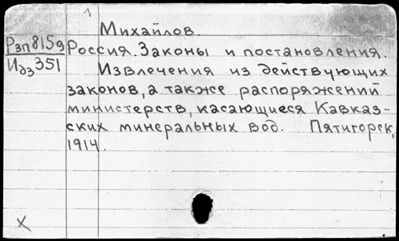 1
Михайлов.
Рзп8159
Россия. Законы и постановления.
Идз351
Извлечения из действующих
законов, а также распоряжений
министерств, касающиеся Кавказ-
ских минеральных вод. Пятигорск,
1914.
X